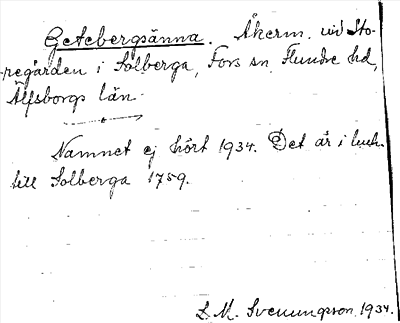 Getebergsänna. Åkerm. vid Sto-
regården i Solberga, Fors sn, Flundre hd,
Älfsborgs län.
Namnet ej hört 1934. Det är i
till Solberga 1759.
L. M. Svenungsson 1934.